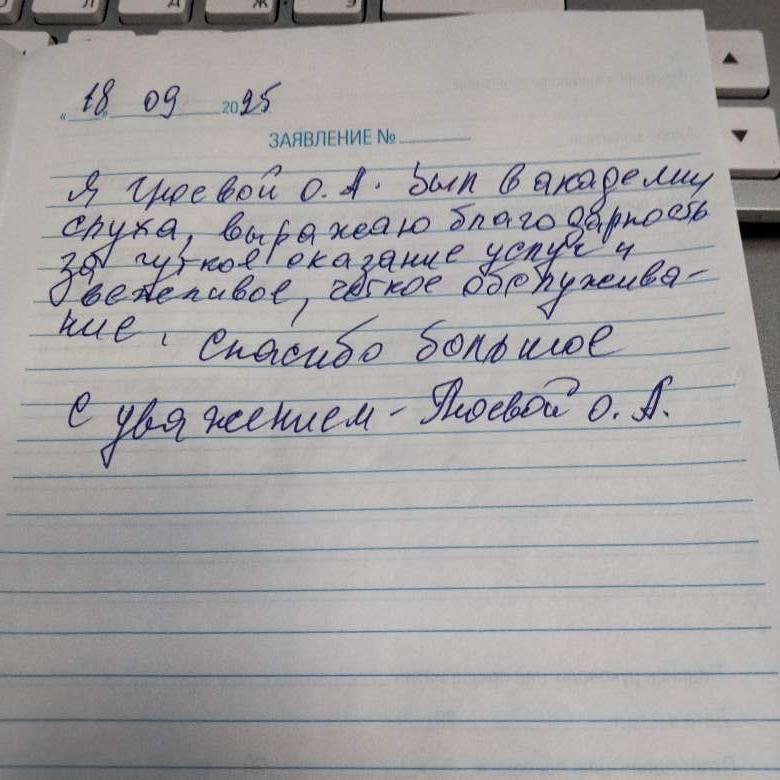 «18» 09 2025
ЗАЯВЛЕНИЕ №
Я О. А. был в академии
слуха, выражаю благодарность
за чуткое оказание услуг и
вежливое, чёткое обслужива-
ние. Спасибо большое
С уважением - О. А.